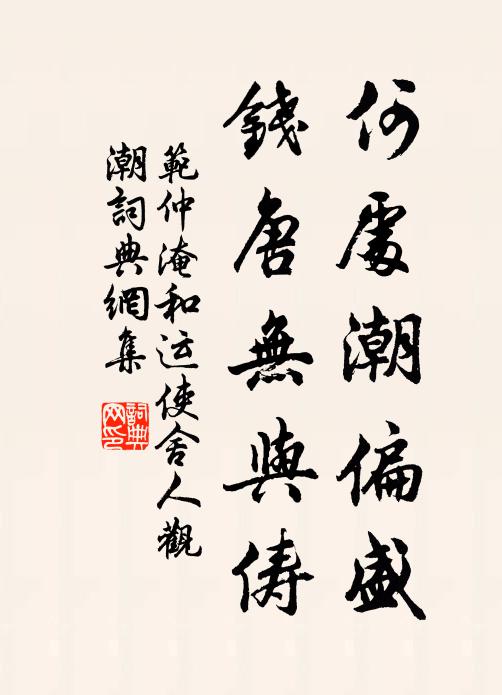 何處潮偏盛
錢唐無與儔
範仲淹和运使舍人觀
潮詞典網集
詞典网印